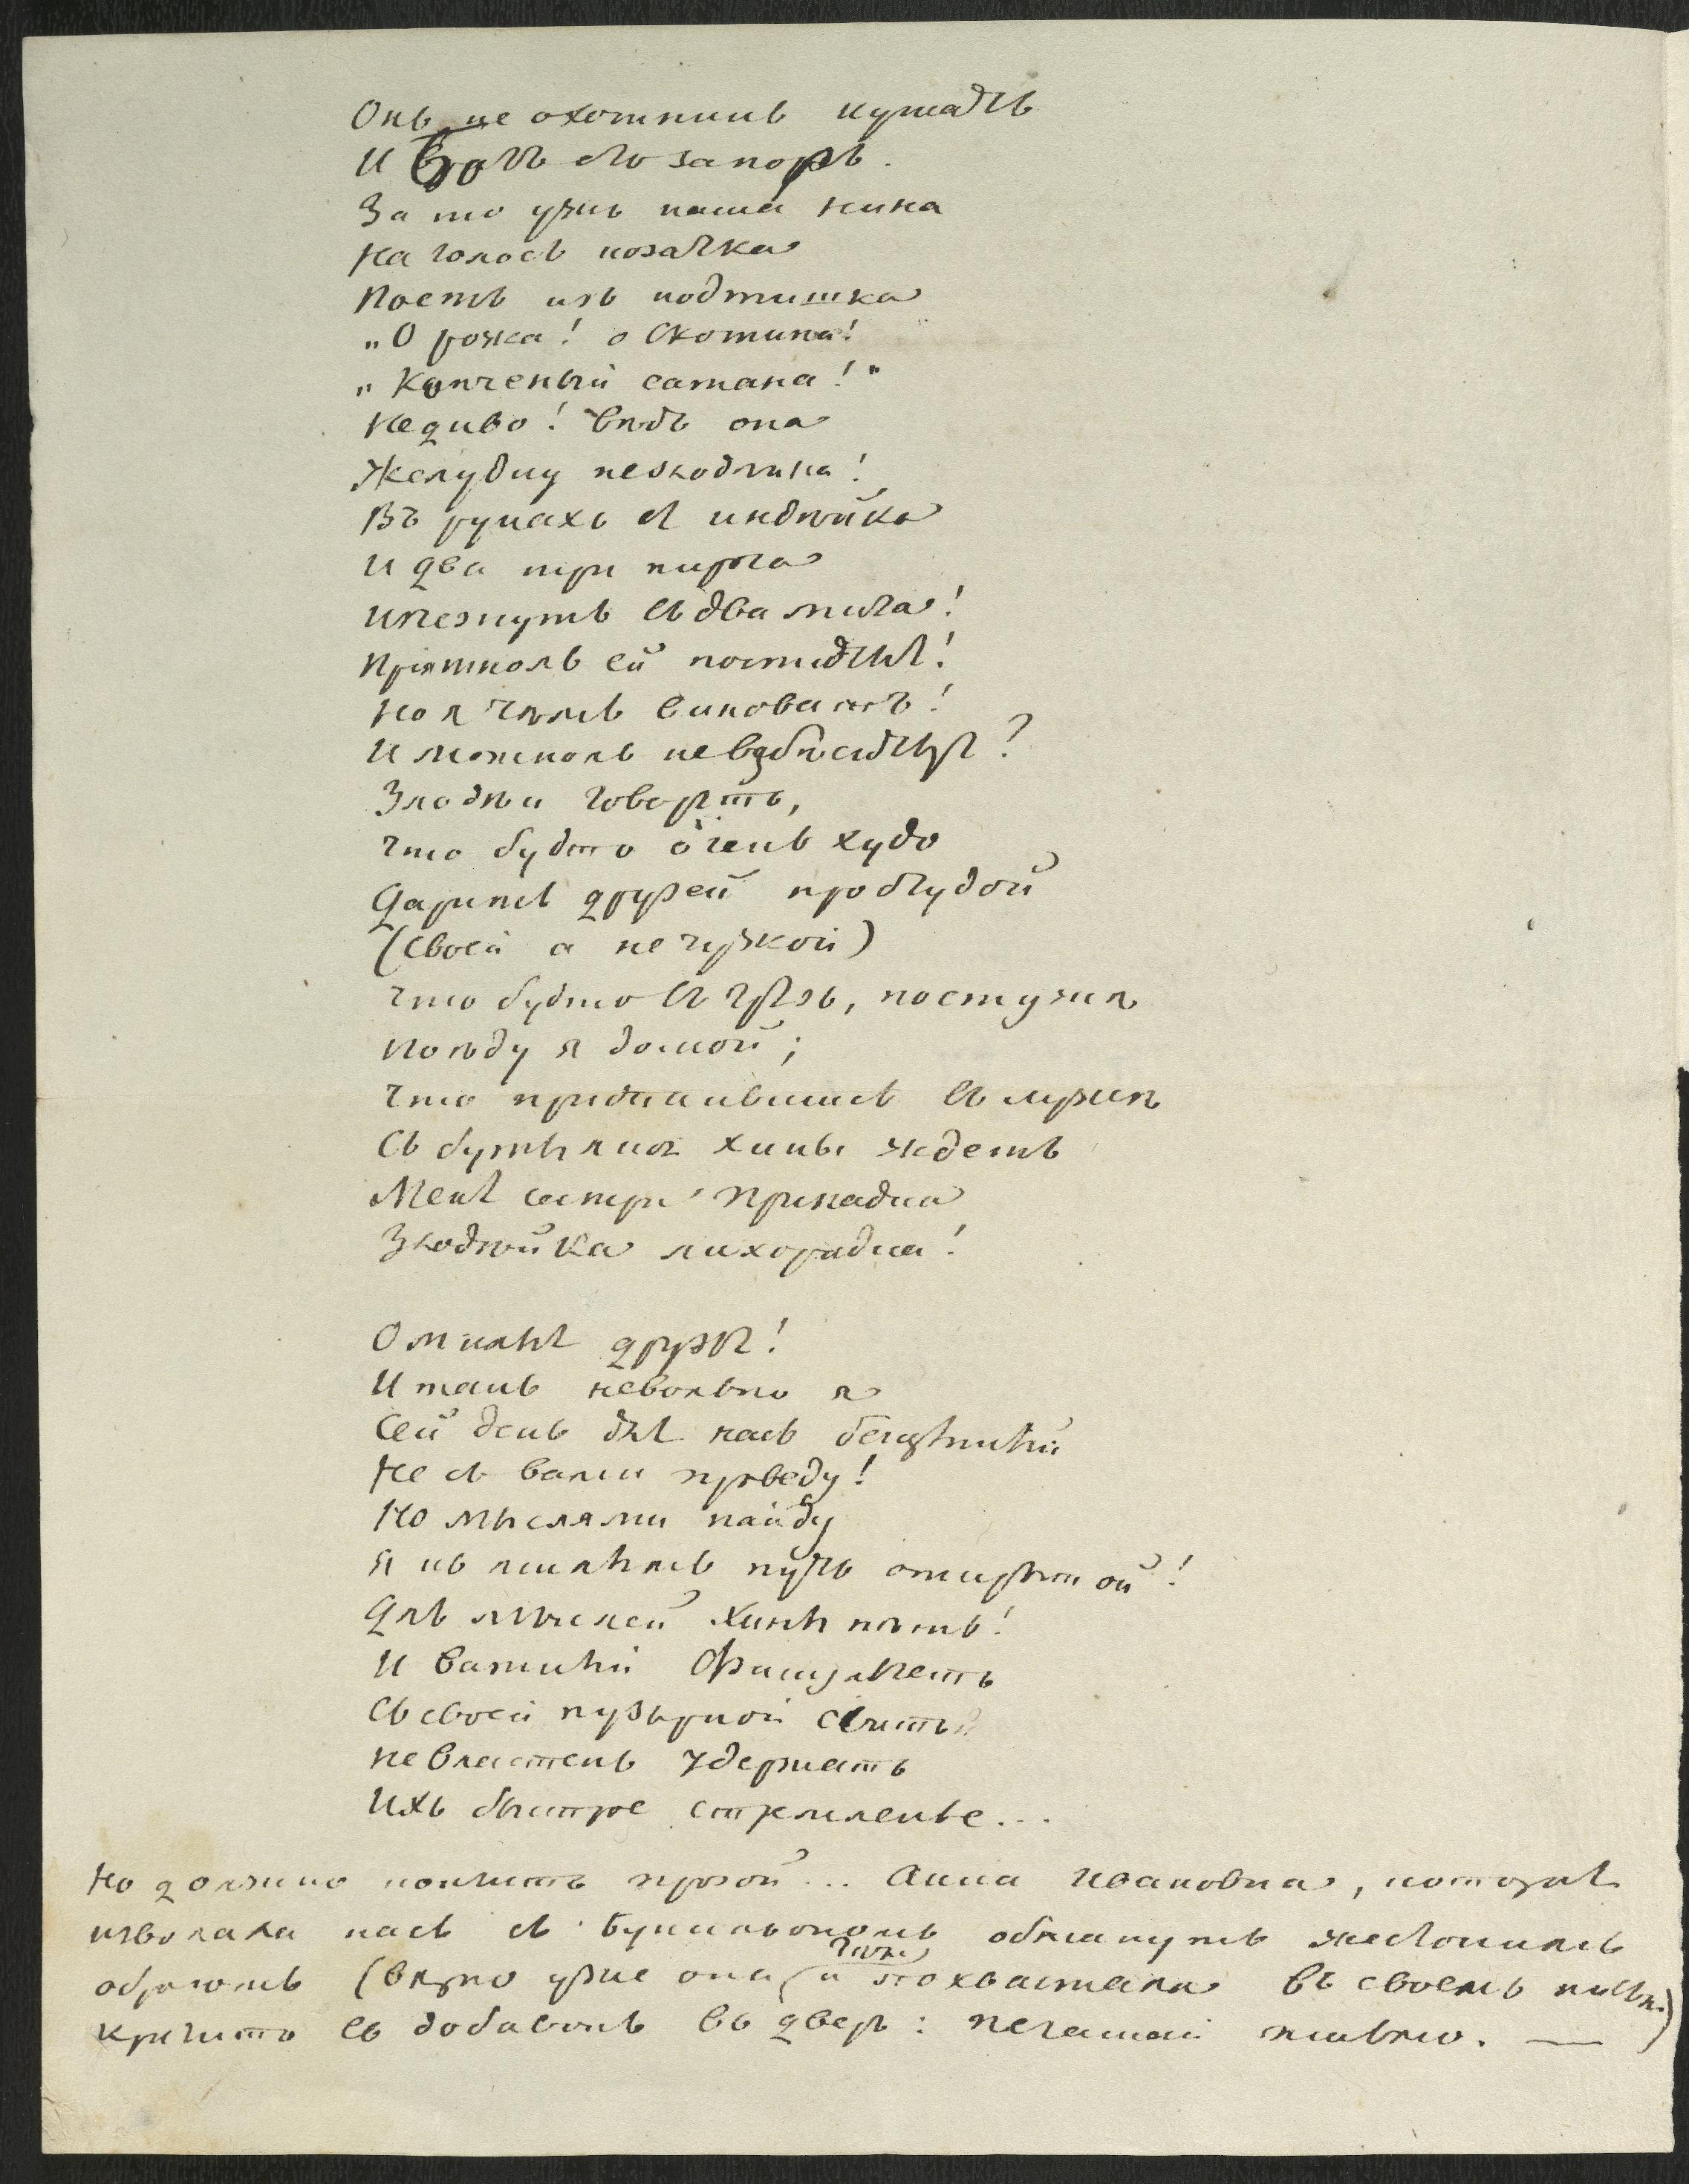 Онъ не охотникъ кушать
И Богъ его запоръ.
За то ужь наша Нина
На голосъ козачка
Поетъ изъ подтишка
„О рожа! о Скотина!
„Копченый сатана!"
Недиво! вѣдь она
Желудку не хозяина!
Въ рукахъ ея индѣйка
И два три пирога
Изчезнутъ въ два мига!
Пріятноль ей поститься!
Но я чѣмъ виноватъ!
И можноль не взбѣситься?
Злодѣи говорятъ,
Что будто очень худо
Дарить друзей простудой
(Своей а не чужой)
Что будто въ грязь, по стужѣ
Поѣду я домой;
Что притаившись въ лужѣ
Съ бутылкой хины ждетъ
Меня сестра припадка
Злодѣйка лихорадка!
О милые друзья!
И такъ невольно я
Сей день для насъ бесцѣнный
Не съ вами проведу!
Но мыслями найду
Я къ милымъ путь открытой!
Для мыслей хины нѣтъ!
И важный Фациустъ
Съ своей пузырной свитой
Не властенъ удержать
Ихъ быстрое стремленье...
Но должно кончить прозой... Анна Ивановна, которая
изволила насъ съ Букильономъ обмануть жестокимъ
образомъ (вѣрно уже она и похвастала въ своемъ письмѣ)
кричитъ съ добавокъ въ дверь: печатай письмо. —